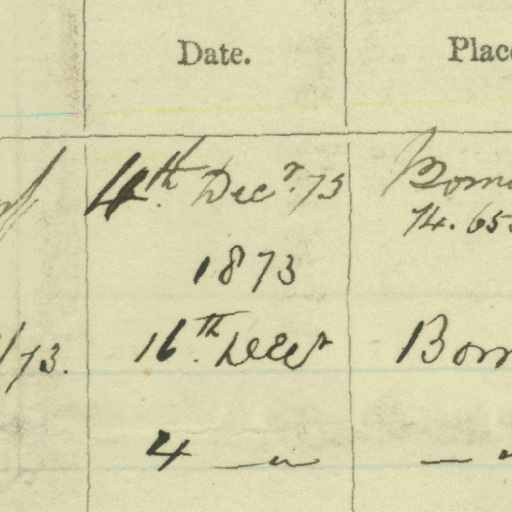 Date. Place
4th Decr. 73 Bom
74.65
1873
/73. 16th Decr Bom
4 — " — — "